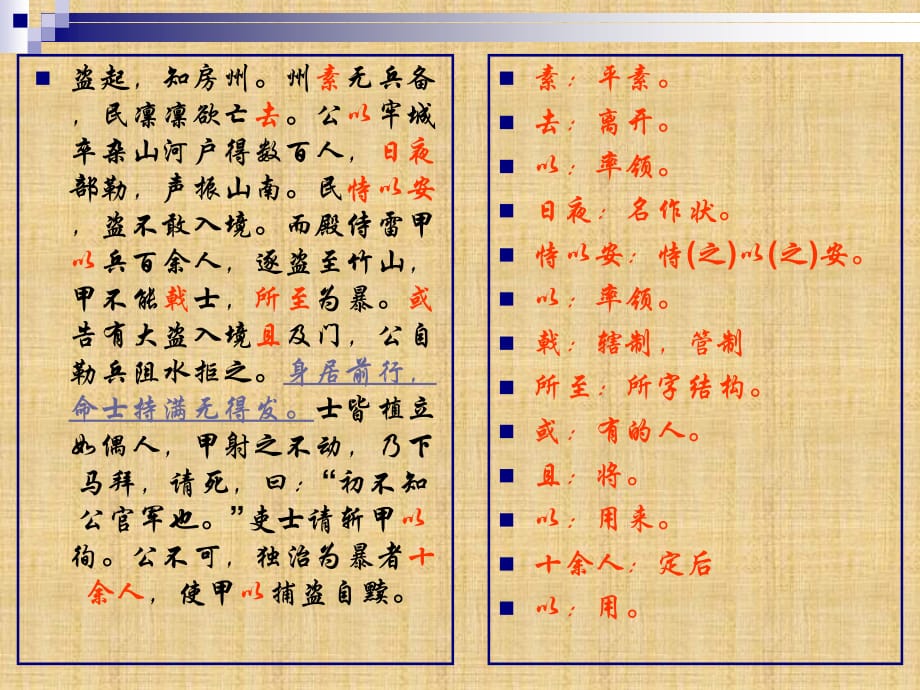 盗起，知房州。州素无兵备
，民凛凛欲亡去。公以牢城
卒杂山河户得数百人，日夜
部勒，声振山南。民恃以安
，盗不敢入境。而殿侍雷甲
以兵百余人，逐盗至竹山，
甲不能戟士，所至为暴。或
告有大盗入境且及门，公自
勒兵阻水拒之。身居前行，
命士持满无得发。士皆植立
如偶人，甲射之不动，乃下
马拜，请死，曰：“初不知
公官军也。”吏士请斩甲以
徇。公不可，独治为暴者十
余人，使甲以捕盗自赎。
素：平素。
去：离开。
以：率领。
日夜：名作状。
恃以安：恃(之)以(之)安。
以：率领。
戟：辖制，管制
所至：所字结构。
或：有的人。
且：将。
以：用来。
十余人：定后
以：用。